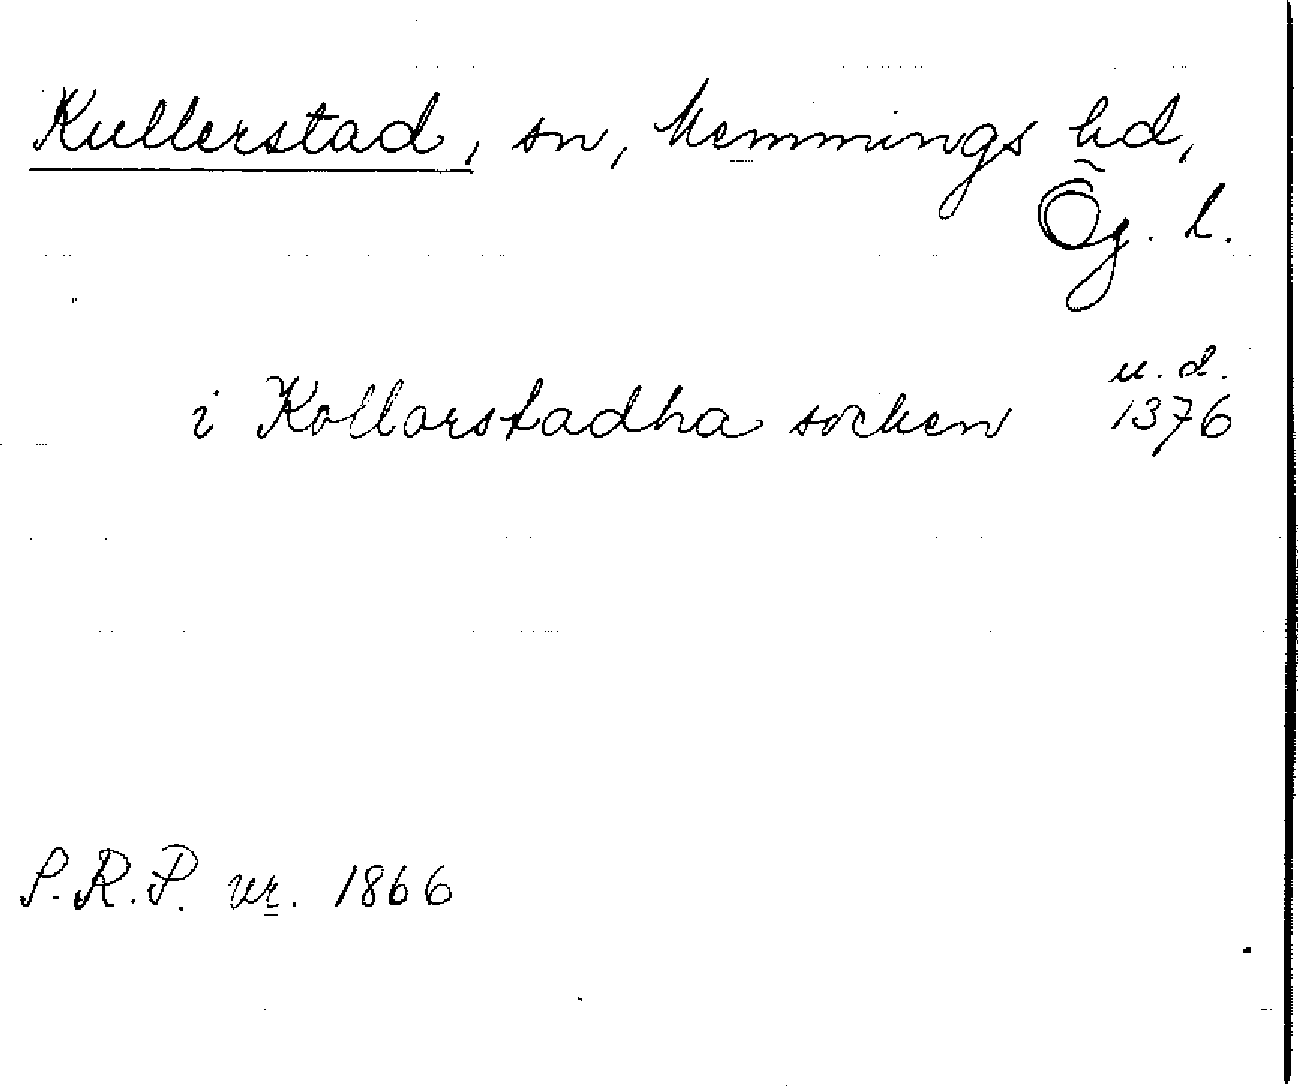 Kullerstad, sn, Memmings hd,
Ög. l.
u. d.
i Kollarstadha socken 1376
S.R.P. nr. 1866